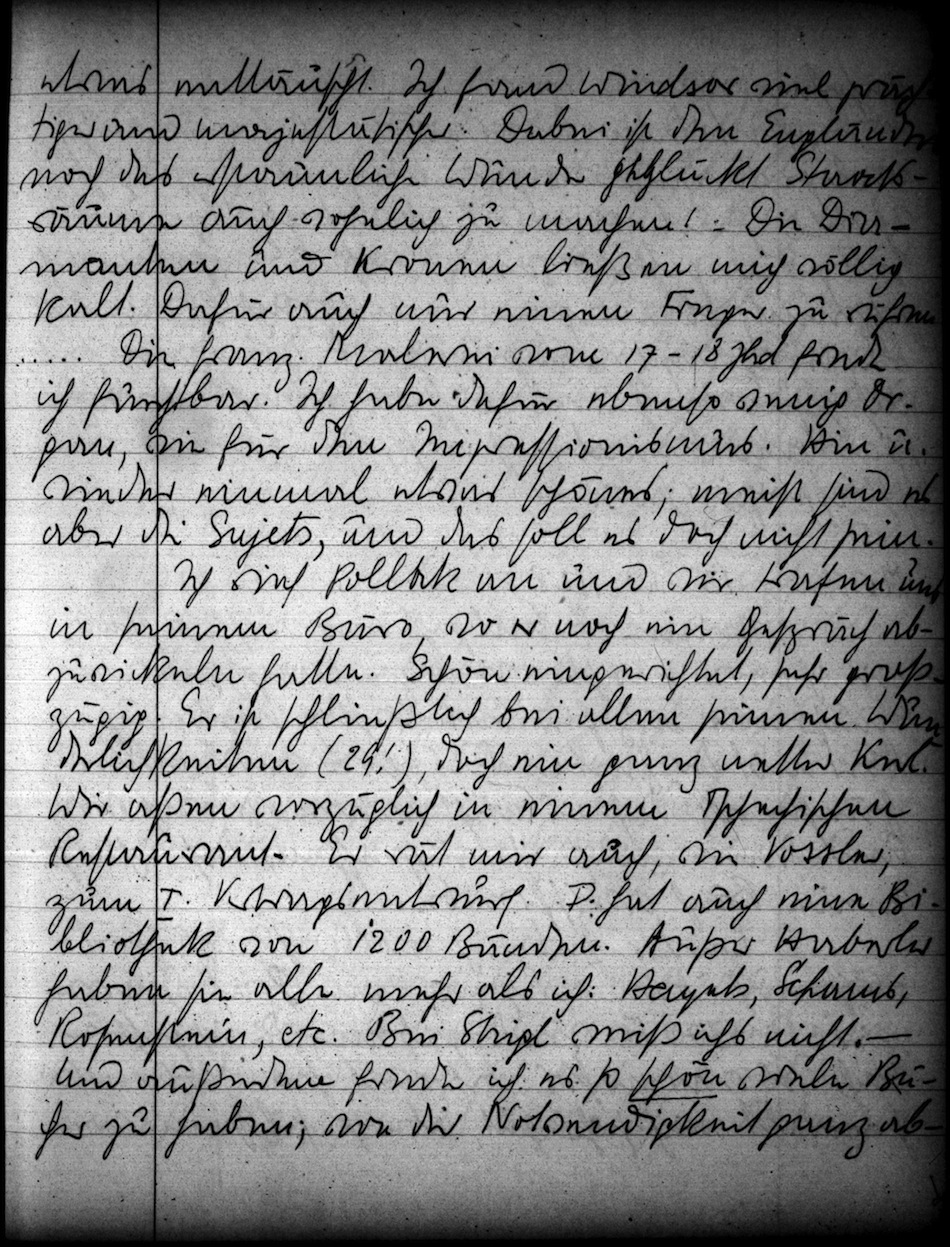 etwas enttäuscht. Ich fand Windsor viel präch-
tiger und majestätischer. Dabei ist den Engländern
noch das erstaunliche Wunder geglückt Staats-
räume auch wohnlich zu machen! - Die Dia-
manten und Kronen ließen mich völlig
kalt. Dafür auch nur einen Finger zu rühren
..... Die franz. Malerei vom 17-18 Jhd finde
ich furchtbar. Ich habe dafür ebenso wenig Or-
gan, wie für den Impressionismus. Hin u.
wieder einmal etwas schönes; meist sind es
aber die Sujets, und das soll es doch nicht sein.
Ich rief Pollak an und wir trafen uns
in seinem Büro, wo er noch ein Gespräch ab-
zuwickeln hatte. Schön eingerichtet, sehr groß-
zügig. Er ist schließlich bei allen seinen Wun-
derlichkeiten (29!), doch ein ganz netter Kerl.
Wir aßen vorzüglich in einem Tschechischen
Restaurant. Er rät mir auch, wie Vossler,
zum T. Vertragsentwurf. P. hat auch eine Bi-
bliothek von 1200 Bänden. Außer Haberler
haben sie alle mehr als ich: Hayek, Schams,
Rosenstein, etc. Bei Strigl weiß ichs nicht. —
Und außerdem finde ich es so schön viele Bü-
cher zu haben; von der Notwendigkeit ganz ab-